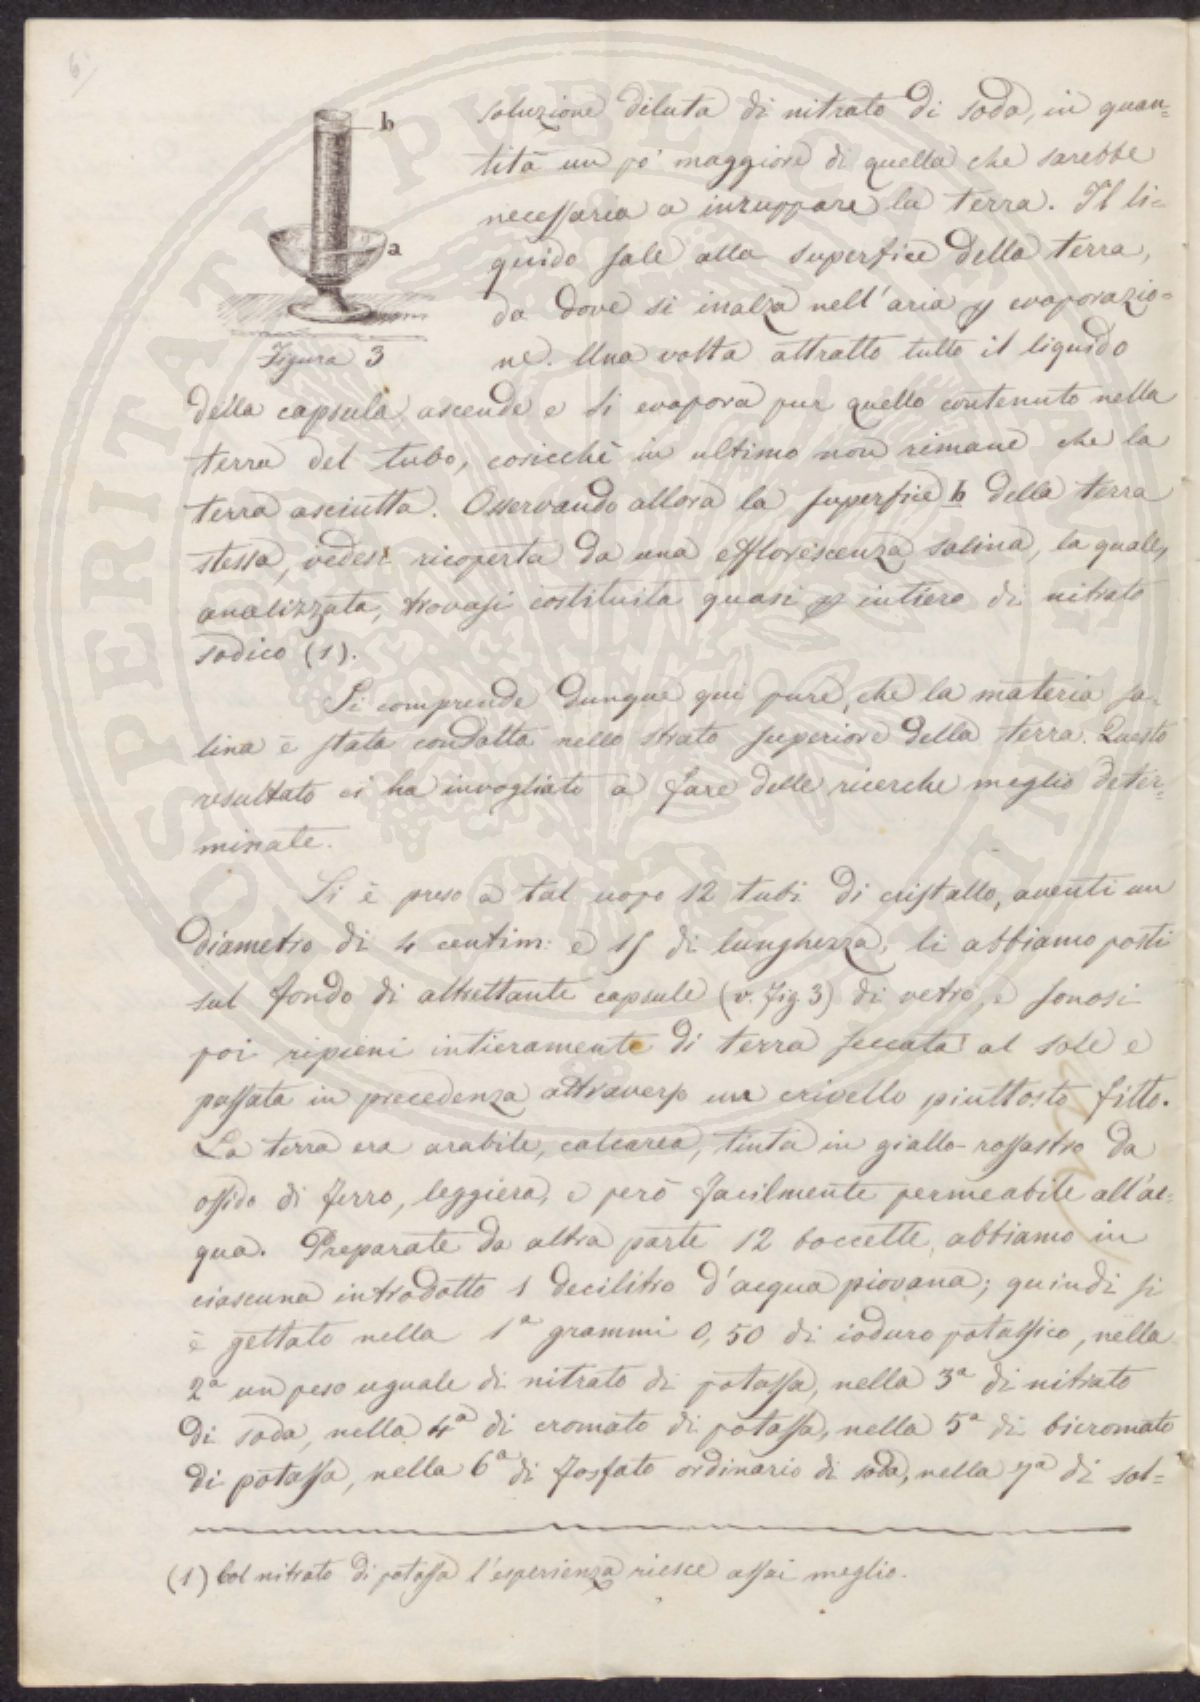 6.
b
a
Figura 3
soluzione diluta di nitrato di soda, in quan=
tità un po' maggiore di quella che sarebbe
necessaria a inzuppare la terra. Il li=
quido sale alla superfice della terra,
da dove si inalza nell'aria p evaporazio=
ne. Una volta attratto tutto il liquido
della capsula, ascende e si evapora pur quello contenuto nella
terra del tubo, cosicchè in ultimo non rimane che la
terra asciutta. Osservando allora la superficie b della terra
stessa, vedesi ricoperta da una efflorescenza salina, la quale,
analizzata, trovasi costituita quasi p intiero di nitrato
sodico (1).
Si comprende dunque qui pure, che la materia sa=
lina è stata condotta nello strato superiore della terra. Questo
resultato ci ha invogliati a fare delle ricerche meglio deter=
minate.
Si è preso a tal uopo 12 tubi di cristallo, aventi un
diametro di 4 centim: e 15 di lunghezza; li abbiamo posti
sul fondo di altrettante capsule (v. fig. 3) di vetro, e sonosi
poi ripieni intieramente di terra seccata al sole e
passata in precedenza attraverso un crivello piuttosto fitto.
La terra era arabile, calcarea, tinta in giallo-rossastro da
ossido di ferro, leggiera, e però facilmente permeabile all'ac=
qua. Preparate da altra parte 12 boccette, abbiamo in
ciascuna introdotto 1 decilitro d'acqua piovana; quindi si
è gettato nella 1ª grammi 0,50 di ioduro potassico, nella
2ª un peso uguale di nitrato di potassa, nella 3ª di nitrato
di soda, nella 4ª di cromato di potassa, nella 5ª di bicromato
di potassa, nella 6ª di fosfato ordinario di soda, nella 7ª di sol=
(1) Col nitrato di potassa l'esperienza riesce assai meglio.